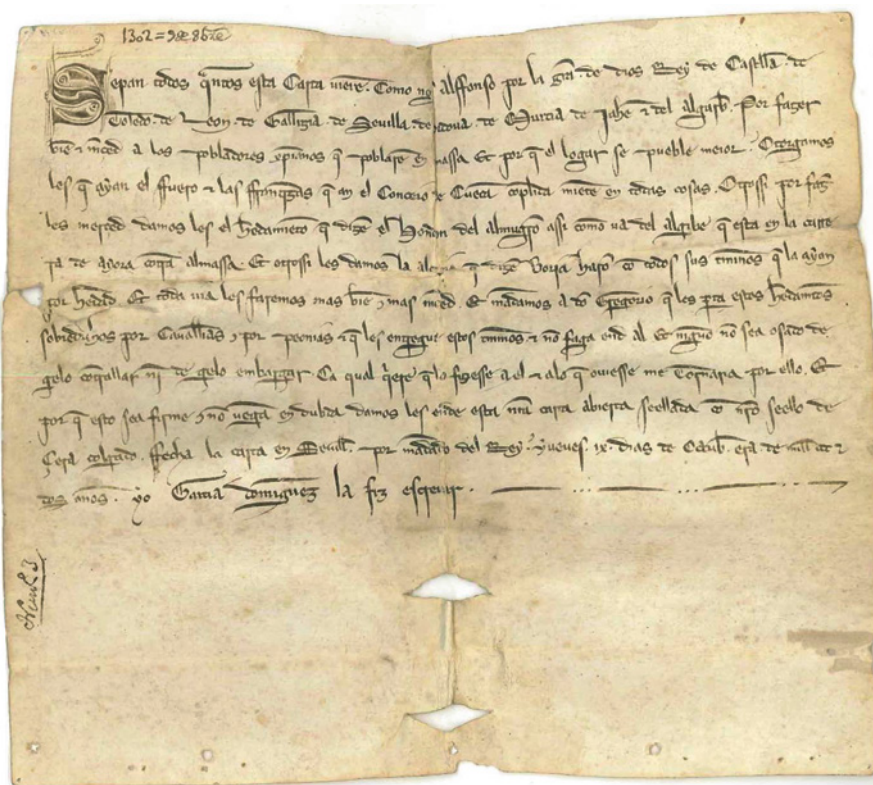 1302 = 9 de 8bre
Sepan todos qntos esta Carta viere. Como nos Alffonso por la gra. de dios Rey de Castiella. de
Toledo. de Leon. de Gallizia. de Sevilla. de Cordova. de Murcia de Jahe τ del Algarb. Por fazer
bie τ mced a los pobladores xpianos q poblare en massa Et por q el logar se pueble meior. Otorgamos
les q ayan el ffuero τ las ffranqzas q an el Conceio de Cueca coplida miete en todas cosas. Otrossi por faz
les merced damos les el hedamieto q dize el Hondon del almugro assi como va del algibe q esta en la carre
ra de agora contra Almassa. Et otrossi les damos la q dize Boria haro co todos sus tminos q la ayan
por hedad. Et toda via les faremos mas bie y mas mced. Et madamos a do Gregorio q les pta estos hedamietos
sobredichos por Cavallias y por peonias τ q les entregue estos tminos τ no faga end al Et niguo no sea osado de
gelo contrallar ni de gelo embargar Ca qual qere q lo fiziesse a el τ alo q oviesse me tornaria por ello. Et
por q esto sea firme y no venga en dubda damos les ende esta nra carta abierta seellada co nro seello de
Cera colgado. ffecha la carta en Sevill. por madado del Rey. yueves. ix. dias de Otub. era de mill ccc τ
dos anos. yo Garcia domiguez la fiz escrevir.
Num 3